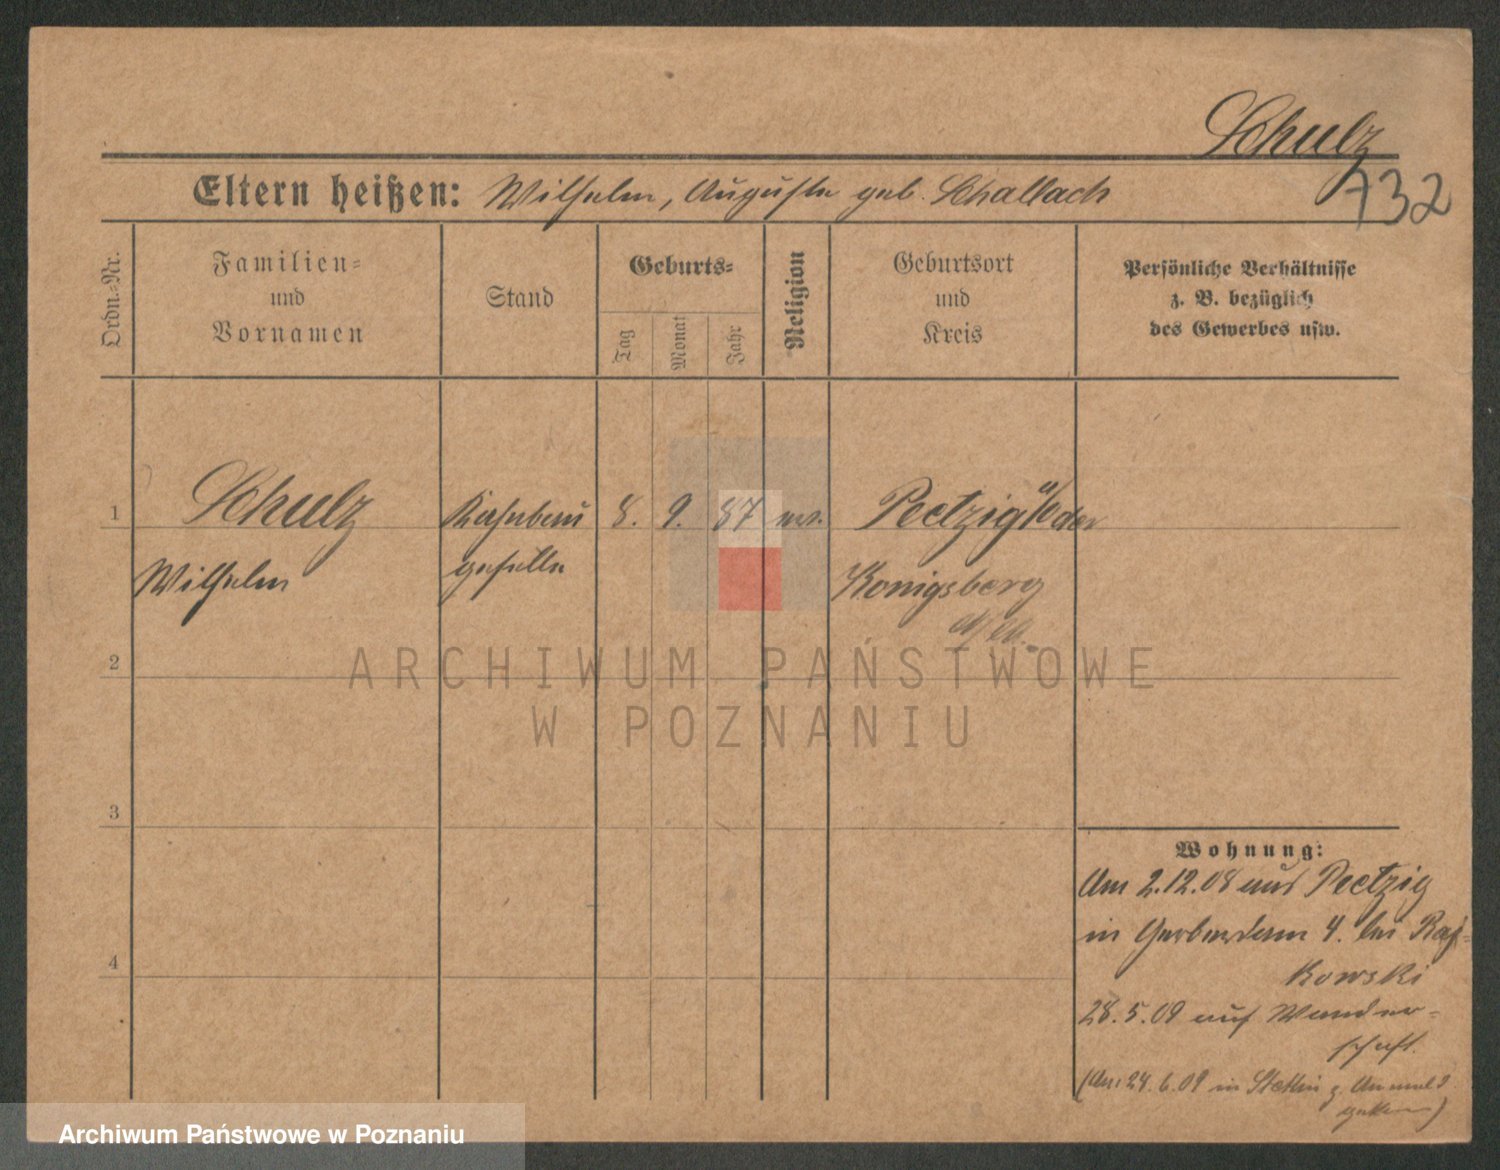 Schulz
732
Eltern heißen: Wilhelm, Auguste geb. Schallach
Ordn.-Nr.
Familien-
und
Vornamen
Stand
Geburts-
Tag
Monat
Jahr
Religion
Geburtsort
und
Kreis
Persönliche Verhältnisse
z. B. bezüglich
des Gewerbes usw.
1
Schulz
Wilhelm
geselle
8. 9. 87
Peetzig a/Oder
Königsberg
N/M.
2
3
4
Wohnung:
Am 2.12.08 aus Peetzig
in Gerberdamm 4. bei
kowski
28.5.09 auf Wander-
schaft.
(Am 24.6.09 in Stettin z. Anmeld
ARCHIWUM PAŃSTWOWE
W POZNANIU
Archiwum Państwowe w Poznaniu